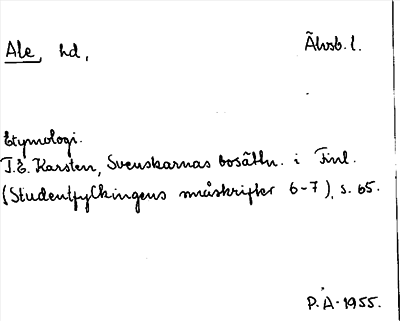 Ale, hd, Älvsb. l.
Etymologi.
T.E. Karsten, Svenskarnas bosättn. i Finl.
(Studentfylkingens småskrifter 6-7), s. 65.
P.A. 1955.